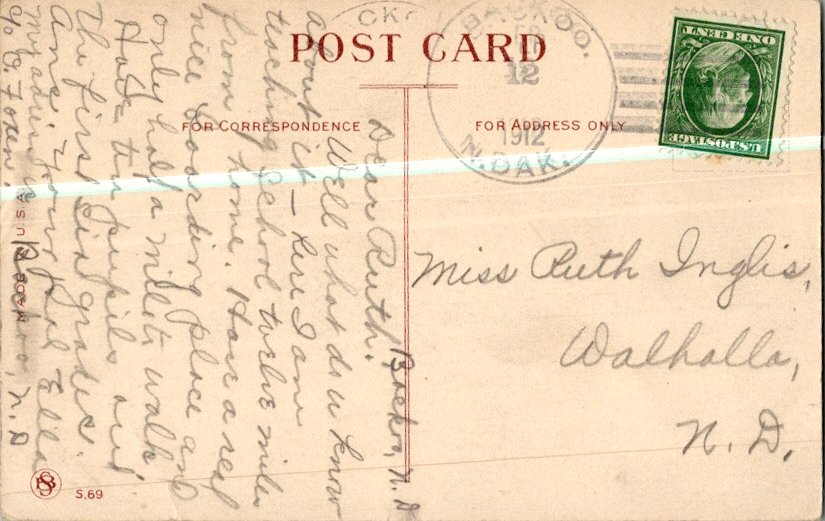 POST CARD
FOR CORRESPONDENCE
FOR ADDRESS ONLY
BACKOO.
12
1912
N. DAK.
U.S. POSTAGE
ONE CENT
Miss Ruth Inglis,
Walhalla,
N. D.
Backoo, N. D
Dear Ruth:
Well what do u know
about it – here I am
teaching school twelve miles
from home. Have a real
nice boarding place and
only half a mile to walk
Have ten pupils and
the first six grades.
Ans. Your pal Ella
c/o
Backoo, N. D
MADE IN U.S.A.
S.69